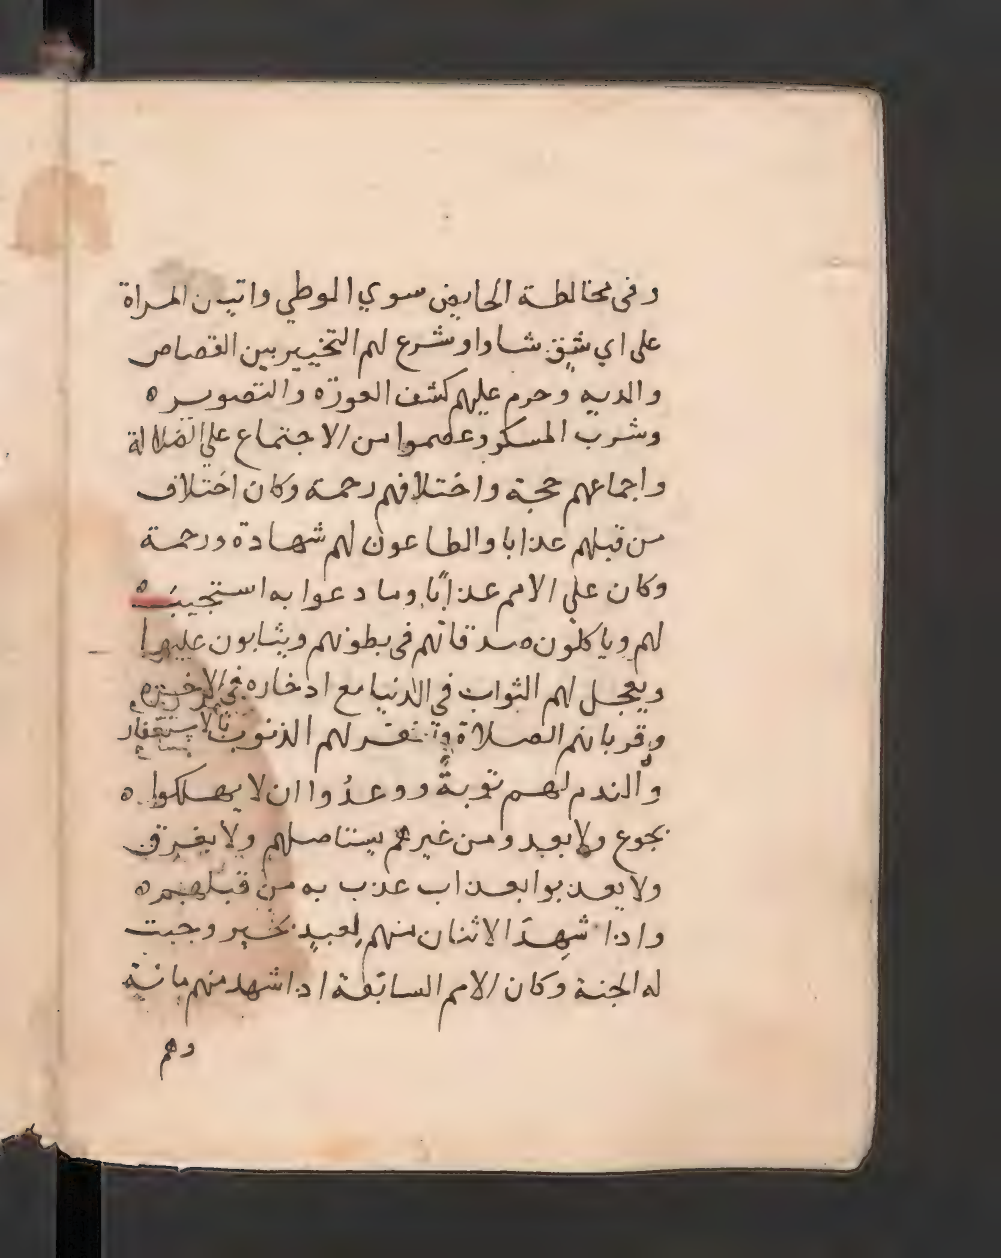 وفى مخالطة الحايض سوي الوطي واتيان المراة
على اي شق شاوا وشرع لهم التخيير بين القصاص
والديه وحرم عليهم كشف العورة والتصوير ه
وشرب المسكر وعصموا من الاجتماع علي الضلالة
واجماعهم حجة واختلافهم رحمة وكان اختلاف
من قبلهم عذابا والطاعون لهم شهادة ورحمة
وكان علي الامم عذابًا وما دعوا به استجيب ه
لهم وياكلون صدقاتهم فى بطونهم ويثابون عليها
ويعجل لهم الثواب في الدنيا مع ادخاره في الاخرة
وقربانهم الصلاة وتغفر لهم الذنوب بالاستغفار
والندم لهم توبة ووعدُوا ان لا يهلكوا ه
بجوع ولا بعدو من غيرهم يستاصلهم ولا بغرق
ولا يعذبوا بعذاب عذب به من قبلهم ه
واذا شهدَ الاثنان منهم لعبدٍ بخير وجبت
له الجنة وكان الامم السابقة اذا شهد منهم ماية
وهم